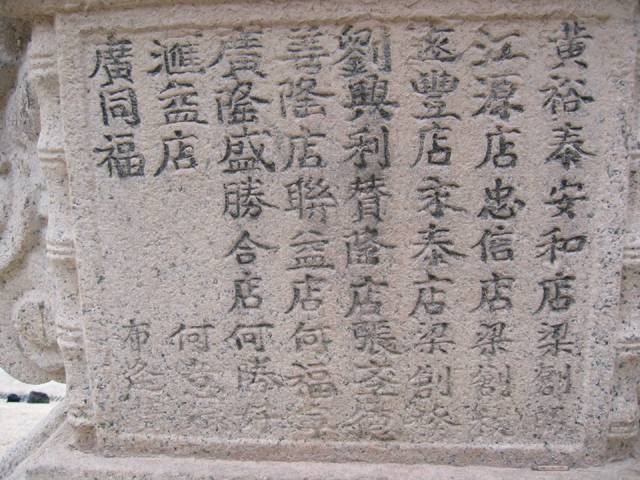 黃裕泰安和店梁創
江源店忠信店梁創
遠豐店永泰店梁創
劉興利贊隆店張
善隆店聯益店何福
廣隆盛勝合店何勝
滙益店何
廣同福布